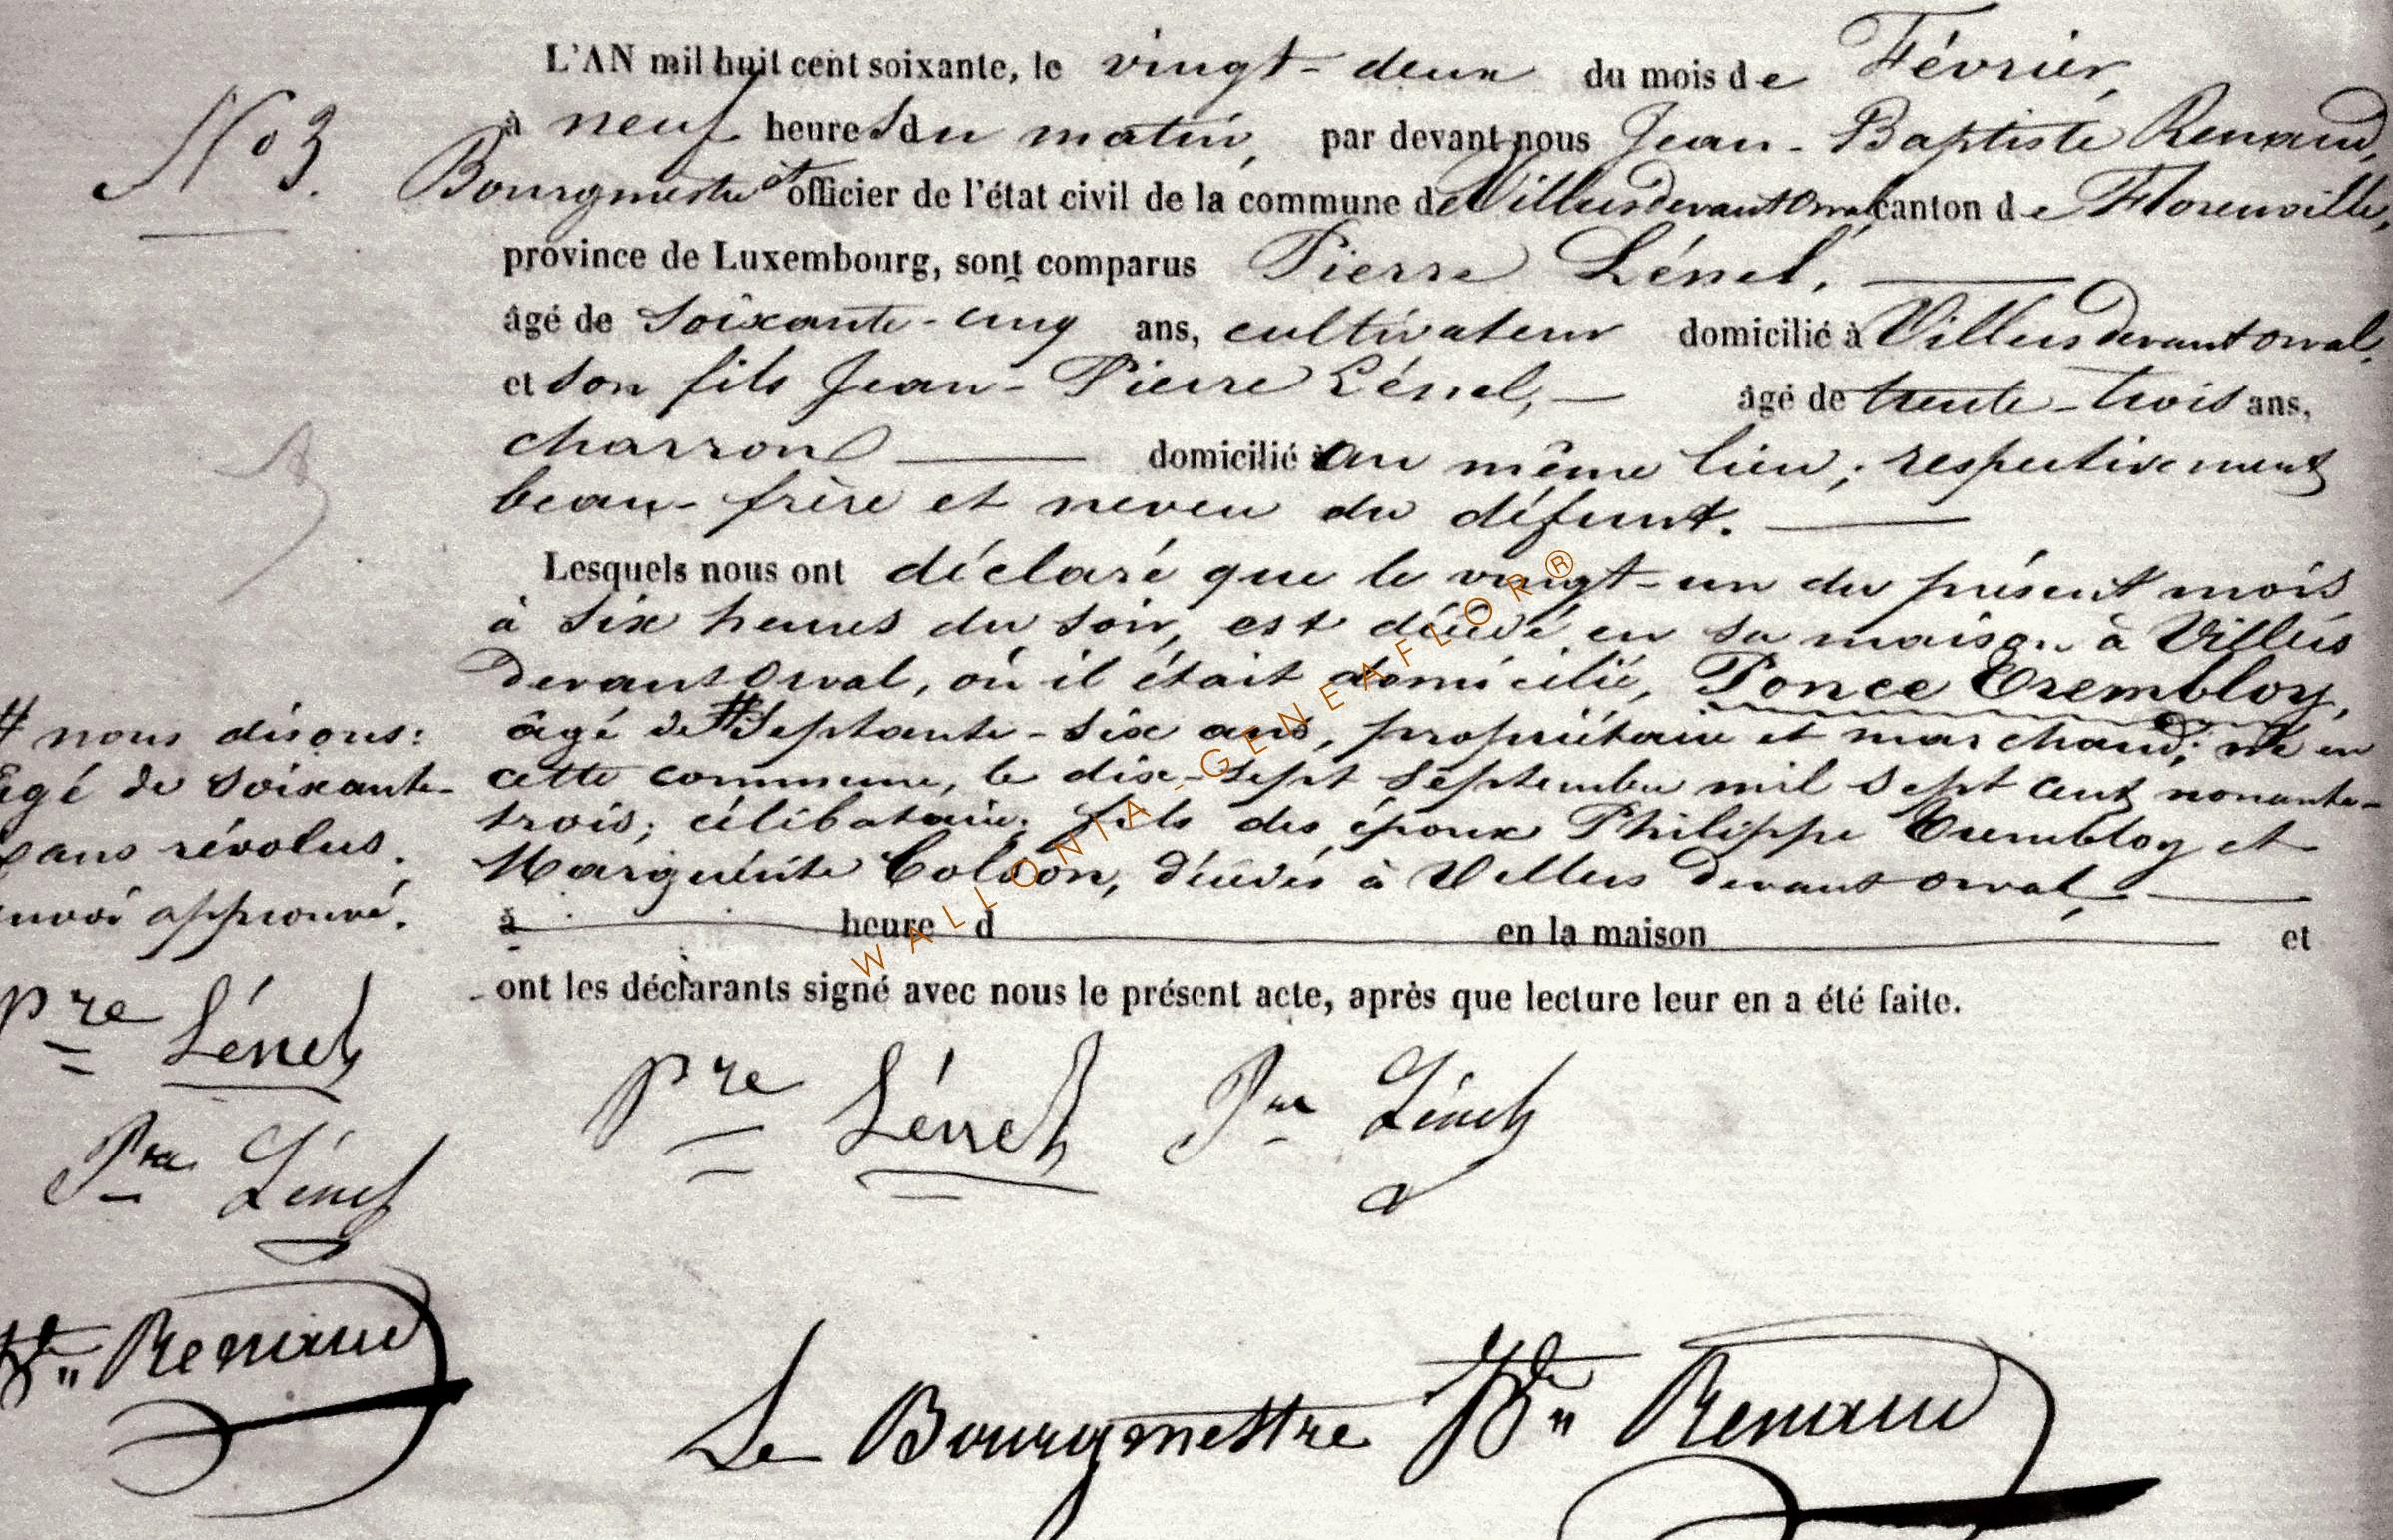 L'AN mil huit cent soixante, le vingt-deux du mois de Février,
à neuf heures du matin, par devant nous Jean-Baptiste Renaud,
No 3.
Bourgmestre et officier de l'état civil de la commune de Villersdevantorval canton de Florenville,
province de Luxembourg, sont comparus Pierre Lénel,
âgé de soixante-cinq ans, cultivateur domicilié à Villersdevantorval,
et son fils Jean-Pierre Lénel, âgé de trente-trois ans,
charron domicilié au même lieu; respectivement
beau-frère et neveu du défunt.
Lesquels nous ont déclaré que le vingt-un du présent mois
à six heures du soir, est décédé en sa maison à Villers
devantorval, où il était domicilié, Ponce Trembloy,
âgé de # septante-six ans, propriétaire et marchand; né en
cette commune, le dix-sept septembre mil sept cent nonante-
trois; célibataire; fils des époux Philippe Trembloy et
Marguérite Colson, décédés à Villers devantorval,
à heure d en la maison et
ont les déclarants signé avec nous le présent acte, après que lecture leur en a été faite.
# nous disons:
âgé de soixante-
ans révolus.
envoi approuvé.
Pre Lénel
Pre Lénel
Renaud
Pre Lénel Pre Lénel
Le Bourgmestre Renaud
WALLONIA-GENEAFLOR®